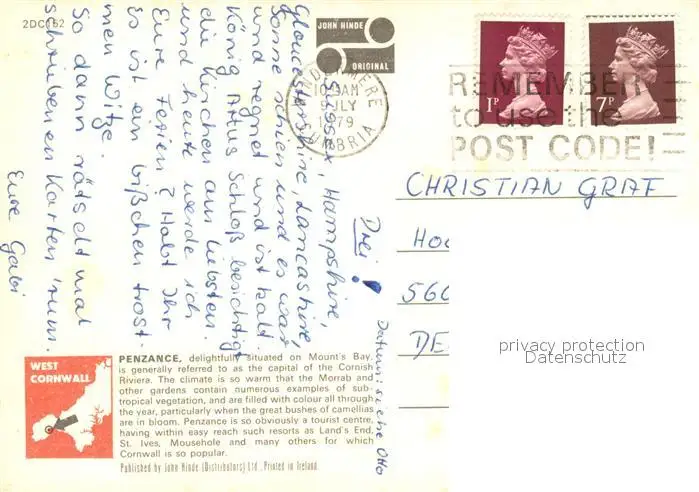 2DC152
JOHN HINDE
ORIGINAL
WINDERMERE
CUMBRIA
9 JULY
1979
REMEMBER
to use the
POST CODE!
1P
7P
Drei!
Sussex, Hampshire,
Gloucestershire, Lancashire,
Sonne schien und es war
und regnet und ist kalt.
König Artus Schloß besichtigt
die Kirchen am liebsten.
und heute werde ich
Eure Ferien? Habt Ihr
Es ist ein bißchen trost-
men Witze.
So dann rätselt mal
schreiben en Karten rum.
Eure Gabi
Datum: siehe Otto
CHRISTIAN GRAF
HO
560
DE
privacy protection
Datenschutz
WEST
CORNWALL
PENZANCE, delightfully situated on Mount's Bay,
is generally referred to as the capital of the Cornish
Riviera. The climate is so warm that the Morrab and
other gardens contain numerous examples of sub-
tropical vegetation, and are filled with colour all through
the year, particularly when the great bushes of camellias
are in bloom. Penzance is so obviously a tourist centre,
having within easy reach such resorts as Land's End,
St. Ives, Mousehole and many others for which
Cornwall is so popular.
Published by John Hinde (Distributors) Ltd., Printed in Ireland.